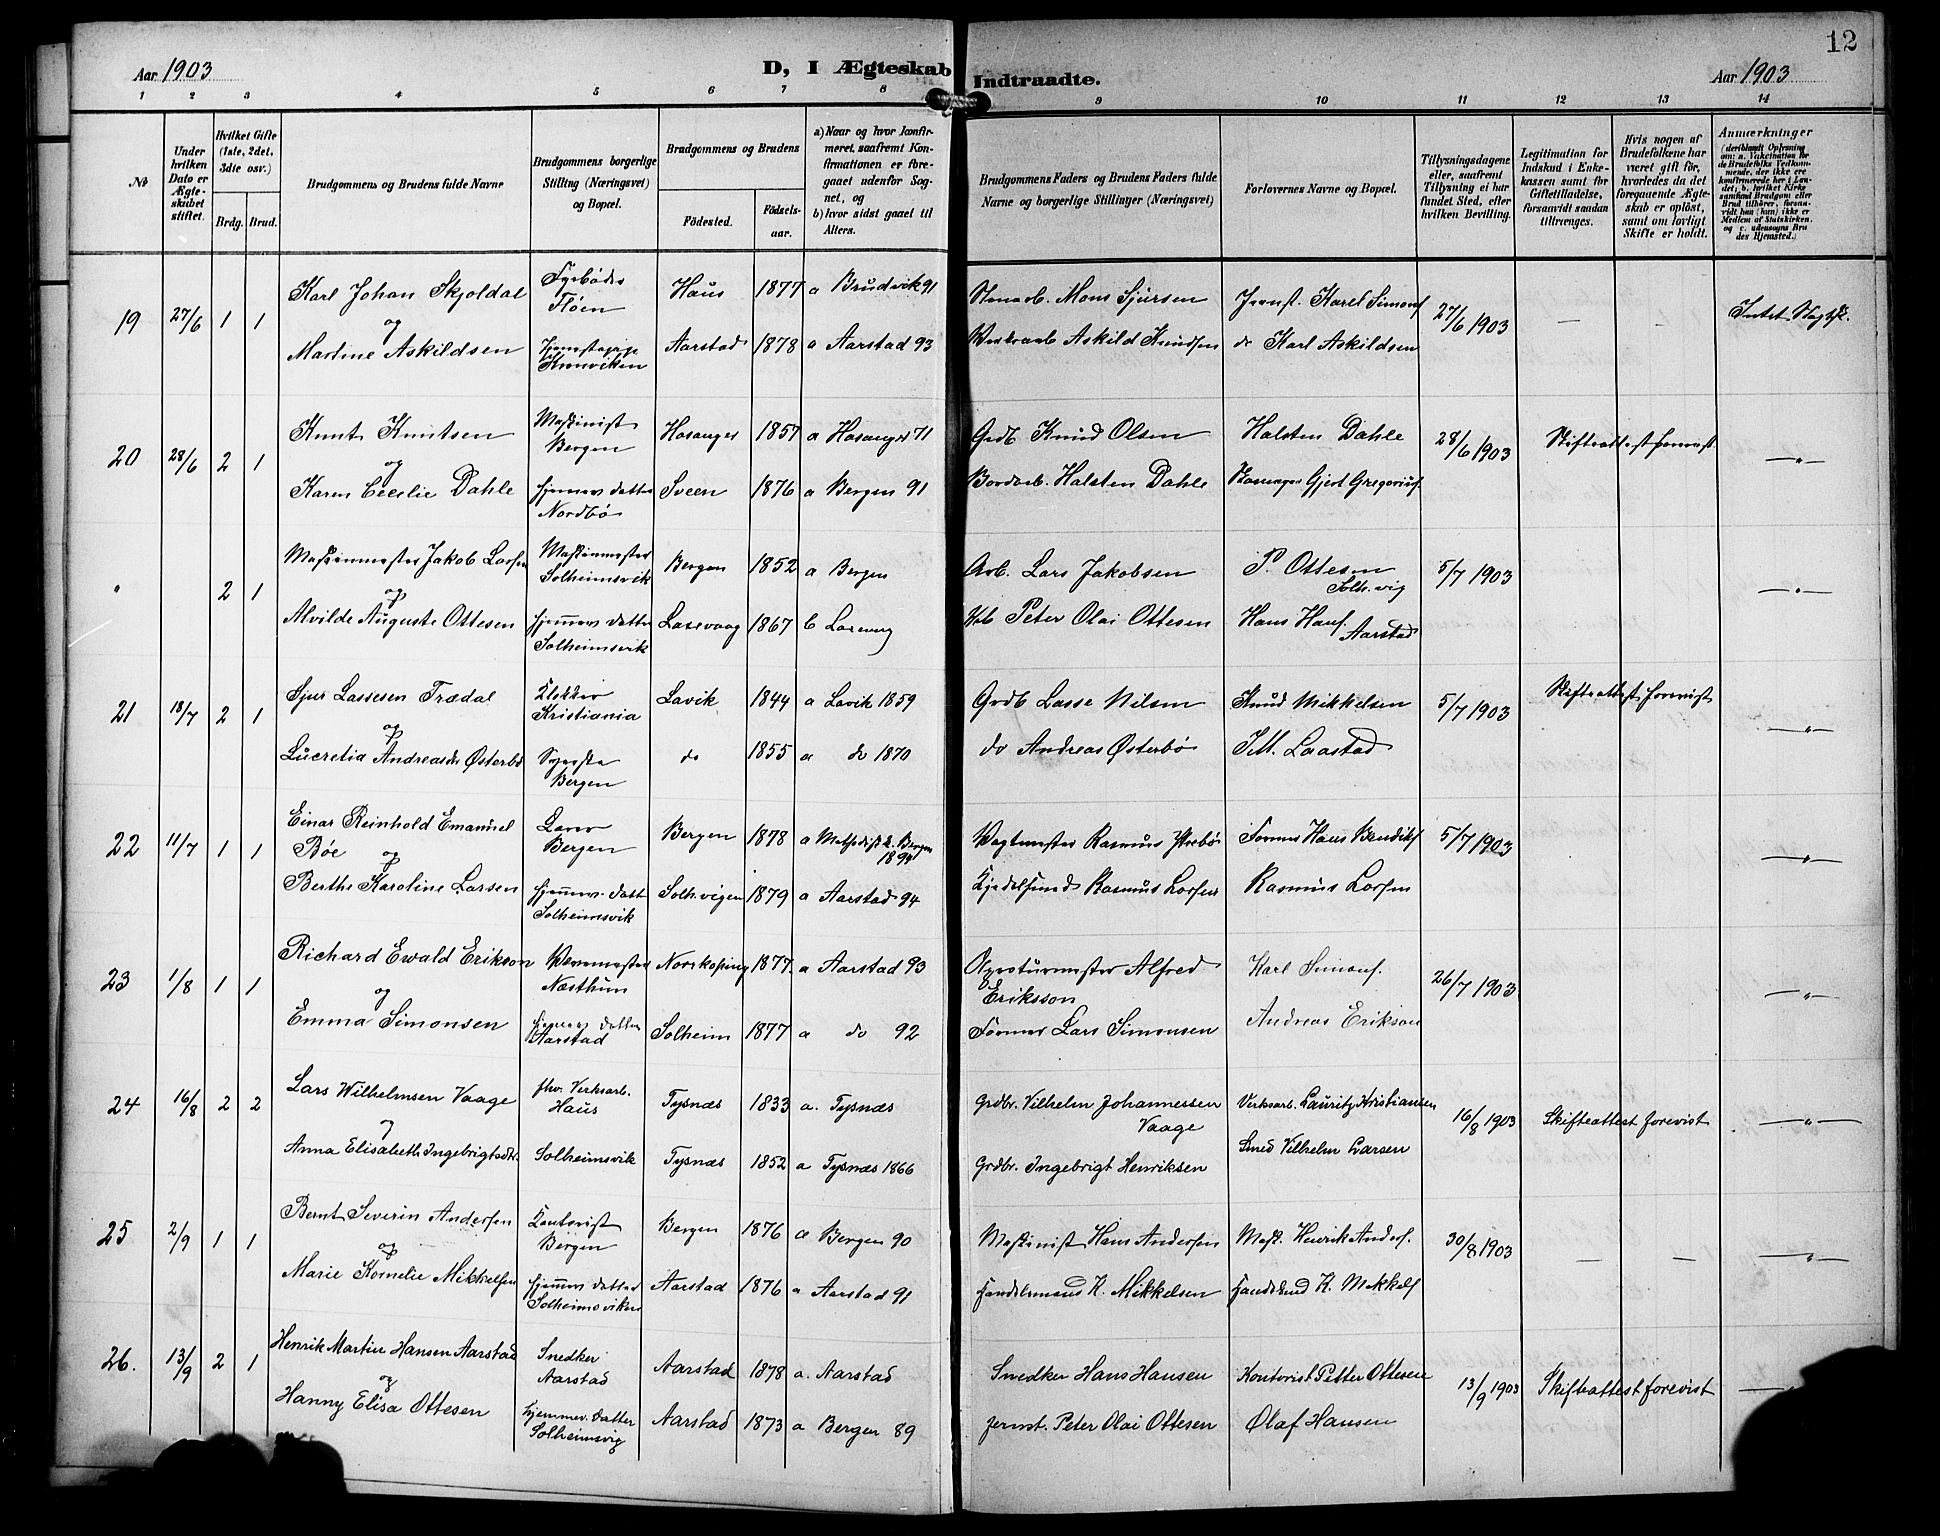 Aar 1903
D, I Ægteskab Indtraadte.
Aar 1903
12
1 2 3 4 5 6 7 8 9 10 11 12 13 14
No
Under hvilken Dato er Ægteskabet stiftet.
Hvilket Gifte (1ste, 2det, 3die osv.)
Brdg. Brud.
Brudgommens og Brudens fulde Navne
Brudgommens borgerlige Stilling (Næringsvei) og Bopæl.
Brudgommens og Brudens
Födested.
Födselsaar.
a) Naar og hvor konfirmeret, saafremt Konfirmationen er foregaaet udenfor Sognet, og
b) hvor sidst gaaet til Alters.
Brudgommens Faders og Brudens Faders fulde Navne og borgerlige Stillinger (Næringsvei)
Forlovernes Navne og Bopæl.
Tillysningsdagene eller, saafremt Tillysning ei har fundet Sted, efter hvilken Bevilling.
Legitimation for Indskud i Enkekassen samt for Giftetilladelse, forsaavidt saadan tiltrænges.
Hvis nogen af Brudefolkene har været gift för, hvorledes da det foregaaende Ægteskab er oplöst, samt om lovligt Skifte er holdt.
Anmærkninger
(deriblandt Oplysning om: a. Vakcination for de Brudefolks Vedkommende, der ikke ere konfirmerede her i Landet; b. hvilket Kirkesamfund Brudgom eller Brud tilhører, forsaavidt han (hun) ikke er Medlem af Statskirken, og c. udensogns Brudes Hjemsted.)
19 27/6 1 1 Karl Johan Skjoldal Fyrböder Flöen Haus 1877 a Brudvik 91 Mons Sjursen Karel Simons 27/6 1903 — —
og
Martine Askildsen Kronviken Aarstad 1878 a Aarstad 93 Askild Knudsen do Karl Askildsen
20 28/6 2 1 Knut Knutsen Maskinist Bergen Hosanger 1857 a Hosanger 71 Grdb Knud Olsen Halsten Dahle 28/6 1903 Skifteattest forevist —"—
og
Karen Cecilie Dahle hjemmev. datter Nordbö Sveen 1876 a Bergen 91 Halsten Dahle Gjert Gregoriusf.
" 2 1 Maskinmester Jakob Larsen Maskinmester Solheimsvik Bergen 1852 a Bergen Arb. Lars Jakobsen P. Ottesen Solh.vig 5/7 1903 —"—
og
Alvilde Auguste Ottesen hjemmev. datter Solheimsvik Laxevaag 1867 b Laxevaag Peter Olai Ottesen Hans Hansf. Aarstad
21 18/7 2 1 Sjur Lassesen Trædal Klokker Kristiania Lavik 1844 a Lavik 1859 Grdb Lasse Nilsen Knud Mikkelsen 5/7 1903 Skifteattest forevist —"—
og
Lucretia Andreasdr Österbö Syerske Bergen do 1855 a do 1870 do Andreas Österbö Laastad
22 11/7 1 1 Einar Reinhold Emanuel Böe Bergen Bergen 1878 a Methodistk. Bergen 1894 Vagtmester Rasmus Former Hans Bendiktf 5/7 1903 —"—
og
Berthe Karoline Larsen hjemmev. datt Solheimsvik Solh.vigen 1879 a Aarstad 94 Kjedelsmed Rasmus Larsen Rasmus Larsen
23 1/8 1 1 Richard Ewald Erikson Næsthun Norrkoping 1877 a Aarstad 93 Alfred Eriksson Karl Simonsf. 26/7 1903 —"—
og
Emma Simonsen hjemmev datter Aarstad Solheim 1877 a do 92 Former Lars Simonsen Andreas Erikson
24 16/8 2 2 Lars Wilhelmsen Vaage fhv. Verksarb. Haus Tysnæs 1833 a. Tysnæs Grdbr. Vilhelm Johannessen Vaage Verksarb. Lauritz Kristiansen 16/8 1903 Skifteattest forevist —"—
og
Anna Elisabeth Ingebrigtsdtr. Solheimsvik Tysnæs 1852 a Tysnæs 1866 Grdbr. Ingebrigt Henriksen Smed Vilhelm Larsen
25 2/9 1 1 Bernt Severin Andersen Kontorist Bergen Bergen 1876 a Bergen 90 Maskinist Hans Andersen Mask. Henrik Andersf. 30/8 1903 — — —"—
og
Marie Kornelie Mikkelsen hjemmev datter Solheimsviken Aarstad 1876 a Aarstad 91 Handelsmand K. Mikkelsen Handelsmd K. Mikkelsf
26. 13/9 2 1 Henrik Martin Hansen Aarstad Snedker Aarstad Aarstad 1878 a. Aarstad Snedker Hans Hansen Kontorist Petter Ottesen 13/9 1903 Skifteattest forevist
og
Hanny Elisa Ottesen hjemmev. datter Solheimsvig Aarstad 1873 a Bergen 89 Jernst. Peter Olai Ottesen Olaf Hansen